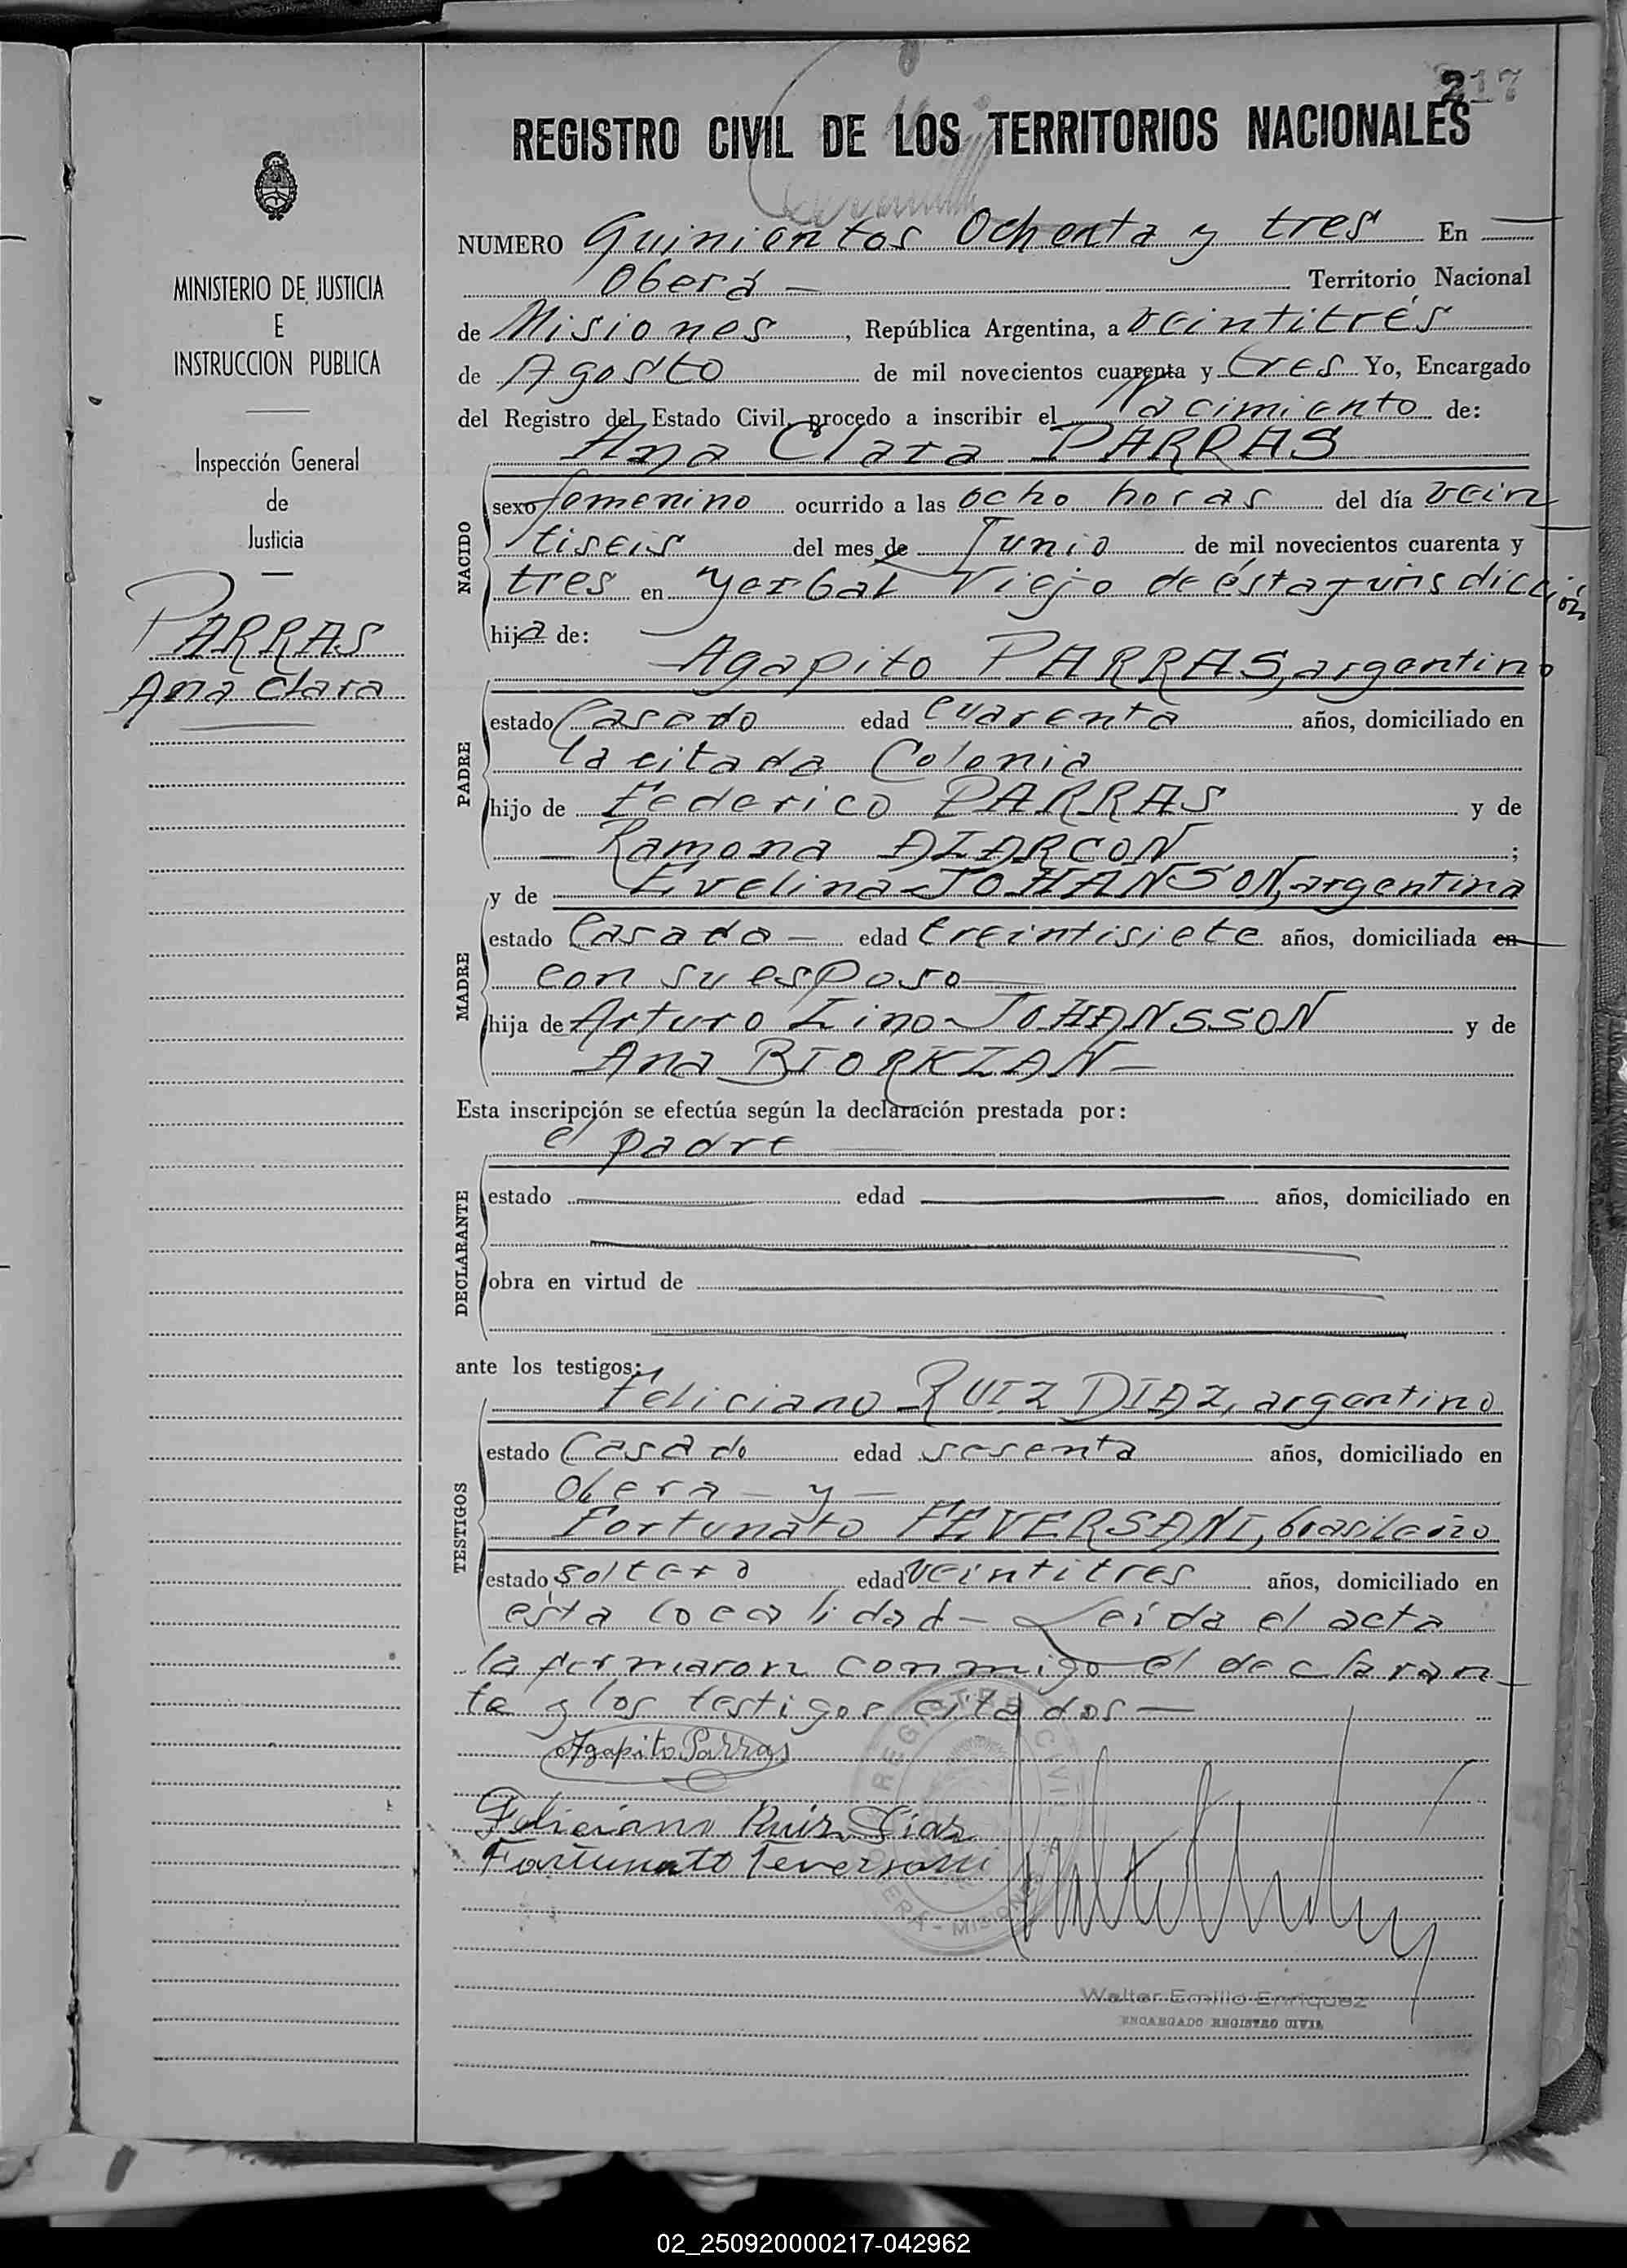 217
REGISTRO CIVIL DE LOS TERRITORIOS NACIONALES
MINISTERIO DE JUSTICIA
E
INSTRUCCION PUBLICA
Inspección General
de
Justicia
PARRAS
Ana Clara
NUMERO Quinientos Ochenta y tres En
Oberá - Territorio Nacional
de Misiones, República Argentina, a veintitrés
de Agosto de mil novecientos cuarenta y tres Yo, Encargado
del Registro del Estado Civil, procedo a inscribir el nacimiento de:
Ana Clara PARRAS
NACIDO
sexo femenino ocurrido a las ocho horas del día vein
tiseis del mes de Junio de mil novecientos cuarenta y
tres en Yerbal Viejo de ésta jurisdicción
hija de:
Agapito PARRAS, argentino
PADRE
estado Casado edad cuarenta años, domiciliado en
la citada Colonia
hijo de Federico PARRAS y de
Ramona ALARCON ;
y de Evelina JOHANSON, argentina
MADRE
estado Casada - edad treintisiete años, domiciliada en
con su esposo
hija de Arturo Lino JOHANSSON y de
Ana BIORKLAN -
Esta inscripción se efectúa según la declaración prestada por:
el padre
DECLARANTE
estado edad años, domiciliado en
obra en virtud de
ante los testigos:
Feliciano RUIZ DIAZ, argentino
TESTIGOS
estado Casado edad sesenta años, domiciliado en
Obera - y -
Fortunato FEVERSANI, brasileiro
estado soltero edad veintitres años, domiciliado en
esta localidad - Leída el acta
la firmaron conmigo el declaran
te y los testigos citados -
Agapito Parras
Feliciano Ruiz Diaz
Fortunato Feversani
REGISTRO CIVIL
OBERA - MISIONES
Walter Emilio Enriquez
ENCARGADO REGISTRO CIVIL
02_250920000217-042962